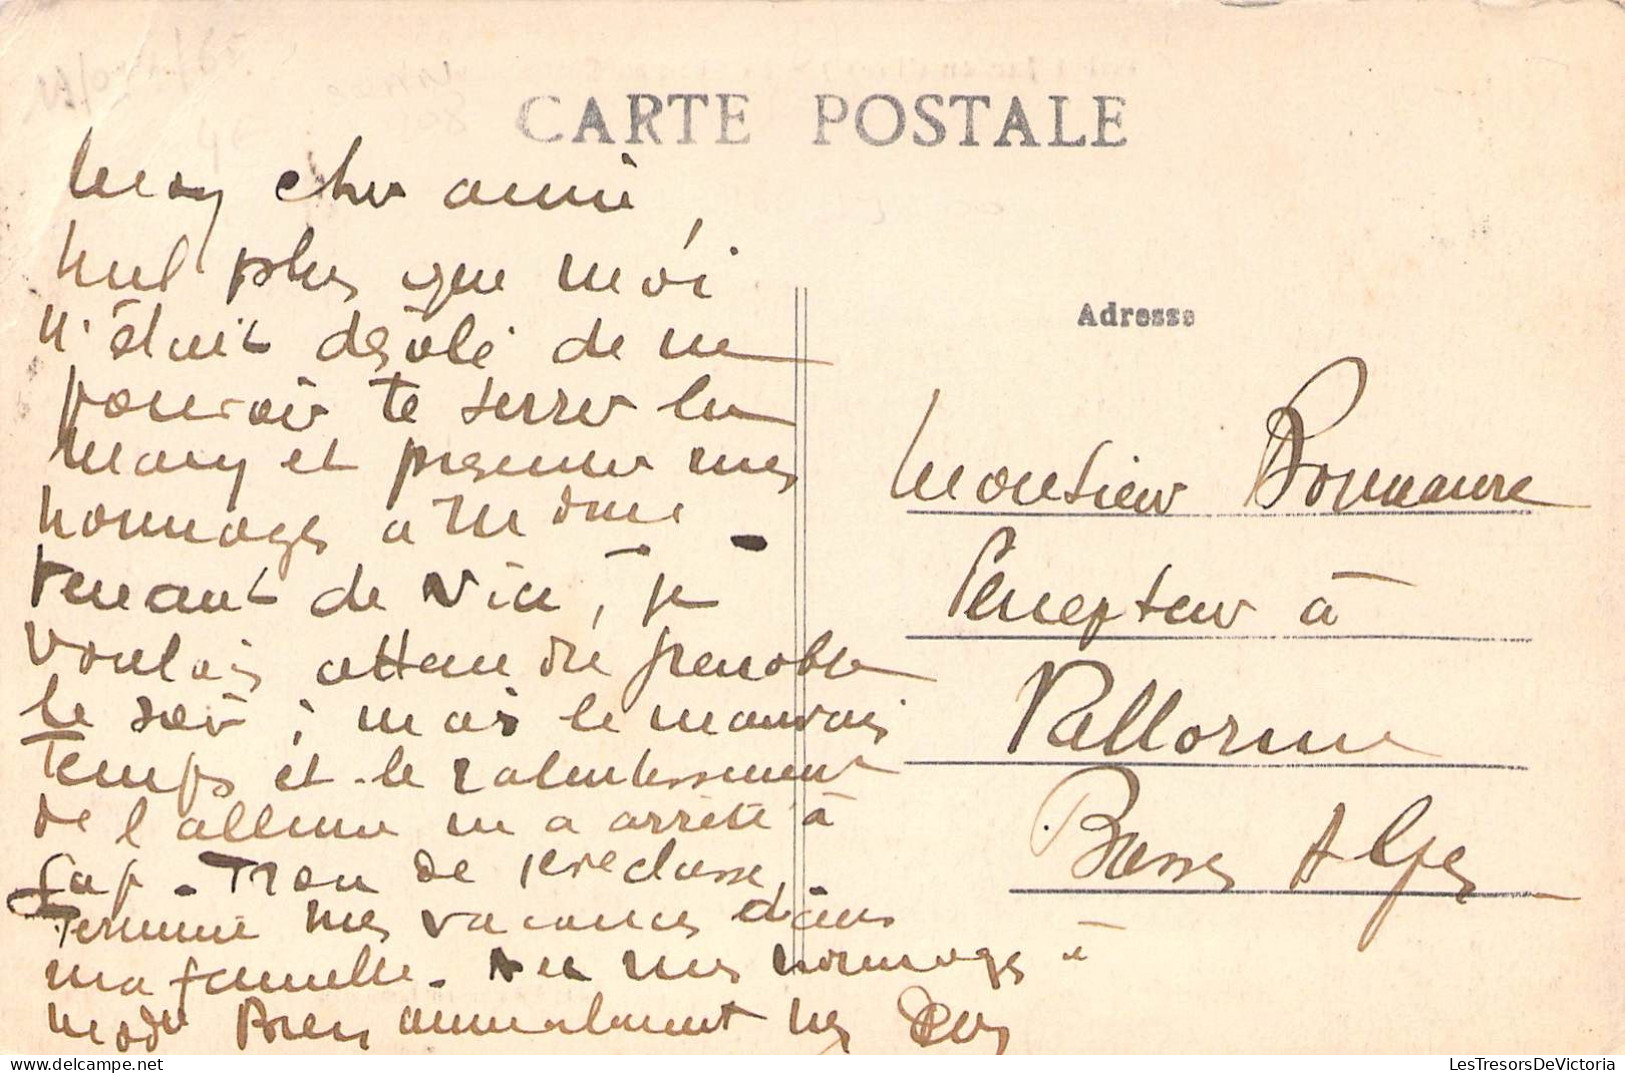 CARTE POSTALE
Mon cher ami,
Nul plus que moi
n'était désolé de ne
pouvoir te serrer la
main et présenter mes
hommages à Madame
Venant de Nice, je
voulais attendre Grenoble
le soir ; mais le mauvais
temps et le ralentissement
de l'allure m'a arrêté à
Gap.
Termine mes vacances dans
ma famille. mes hommages à
Bien amicalement
Adresse
Monsieur Bonnaure
Percepteur à
Vallorme
Basses Alpes
LesTresorsDeVictoria.com